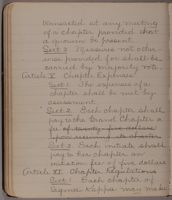 transacted at any meeting
of a chapter provided that
a quorum be present.
Sect 3 Measures not other-
wise provided for shall be
carried by majority vote.
Article X Chapter Expenses
Sect 1. The expenses of a
chapter shall be met by
assessment.
Sect 2. Each chapter shall
pay to the Grand Chapter a
fee of twenty five dollars
upon receiving its charter
Sect 3. Each initiate shall
pay to her chapter an
initiation fee of five dollars
Article XI. Chapter Regulations
Sect 1. Each chapter of
Kappa may make